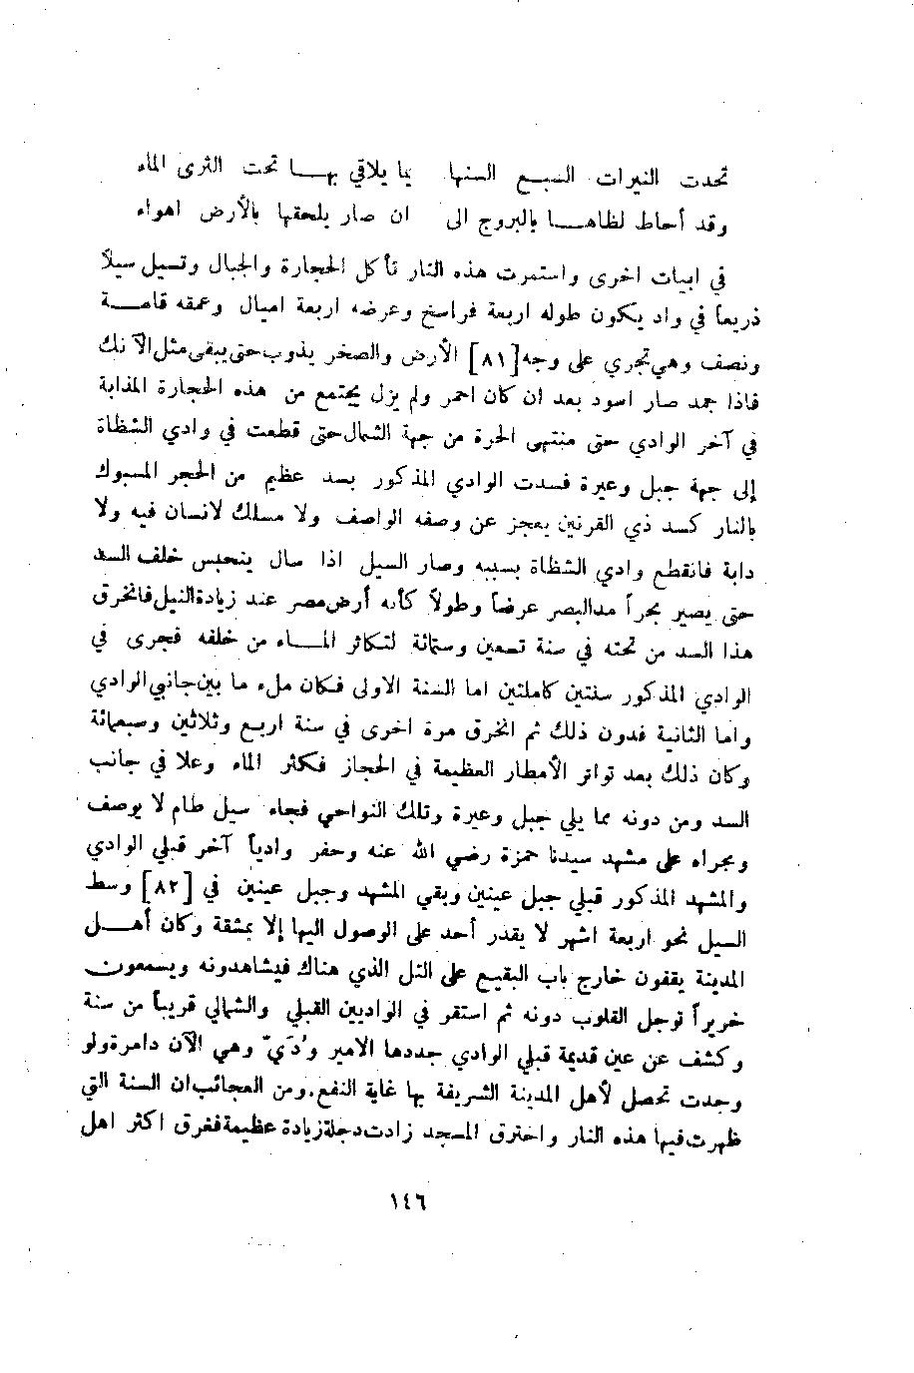 تحدت النيرات السبع السنها بما يلاقي بها تحت الثرى الماء
وقد أحاط لظاها بالبروج الى ان صار يلحقها بالأرض اهواء
في ابيات اخرى واستمرت هذه النار تأكل الحجارة والجبال وتسيل سيلاً
ذريعاً في واد يكون طوله اربعة فراسخ وعرضه اربعة اميال وعمقه قامة
ونصف وهي تجري على وجه [٨١] الأرض والصخر يذوب حتى يبقى مثل الآنك
فاذا جمد صار اسود بعد ان كان احمر ولم يزل يجتمع من هذه الحجارة المذابة
في آخر الوادي حتى منتهى الحرة من جهة الشمال حتى قطعت في وادي الشظاة
إلى جهة جبل وعيرة فسدت الوادي المذكور بسد عظيم من الحجر المسبوك
بالنار كسد ذي القرنين يعجز عن وصفه الواصف ولا مسلك لانسان فيه ولا
دابة فانقطع وادي الشظاة بسببه وصار السيل اذا سال ينحبس خلف السد
حتى يصير بحراً مد البصر عرضاً وطولاً كأنه أرض مصر عند زيادة النيل فانخرق
هذا السد من تحته في سنة تسعين وستمائة لتكاثر الماء من خلفه فجرى في
الوادي المذكور سنتين كاملتين اما السنة الاولى فكان ملء ما بين جانبي الوادي
واما الثانية فدون ذلك ثم انخرق مرة اخرى في سنة اربع وثلاثين وسبعمائة
وكان ذلك بعد تواتر الأمطار العظيمة في الحجاز فكثر الماء وعلا في جانب
السد ومن دونه مما يلي جبل وعيرة وتلك النواحي فجاء سيل طام لا يوصف
ومجراه على مشهد سيدنا حمزة رضي الله عنه وحفر وادياً آخر قبلي الوادي
والمشهد المذكور قبلي جبل عينين وبقي المشهد وجبل عينين في [٨٢] وسط
السيل نحو اربعة اشهر لا يقدر أحد على الوصول اليها إلا بمشقة وكان أهل
المدينة يقفون خارج باب البقيع على التل الذي هناك فيشاهدونه ويسمعون
خريراً توجل القلوب دونه ثم استقر في الواديين القبلي والشمالي قريباً من سنة
وكشف عن عين قديمة قبلي الوادي جددها الامير وُدَيّ وهي الآن دامرة ولو
وجدت تحصل لأهل المدينة الشريفة بها غاية النفع. ومن العجائب ان السنة التي
ظهرت فيها هذه النار واحترق المسجد زادت دجلة زيادة عظيمة فغرق اكثر اهل
١٤٦